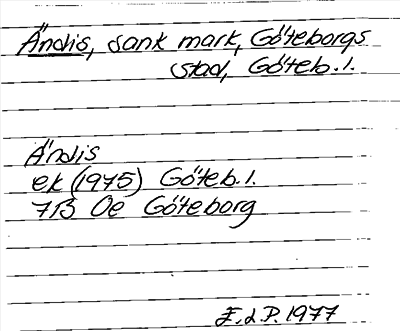 Ändis, sank mark, Göteborgs
stad, Göteb. l.
Ändis
ek (1975) Göteb. l.
7B 0e Göteborg
E.L.P. 1977